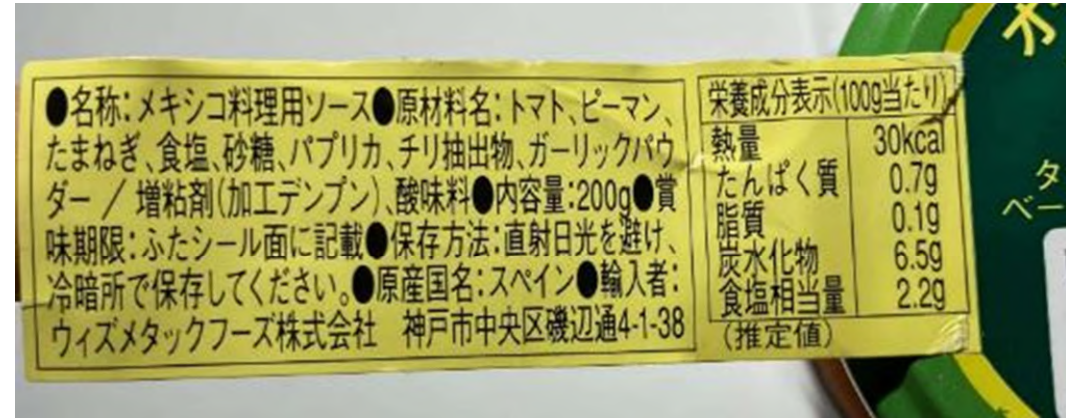 ●名称:メキシコ料理用ソース●原材料名:トマト、ピーマン、
たまねぎ、食塩、砂糖、パプリカ、チリ抽出物、ガーリックパウ
ダー / 増粘剤(加工デンプン)、酸味料●内容量:200g●賞
味期限:ふたシール面に記載●保存方法:直射日光を避け、
冷暗所で保存してください。●原産国名:スペイン●輸入者:
ウィズメタックフーズ株式会社 神戸市中央区磯辺通4-1-38
栄養成分表示(100g当たり)
熱量 30kcal
たんぱく質 0.7g
脂質 0.1g
炭水化物 6.5g
食塩相当量 2.2g
(推定値)
タ
ベー